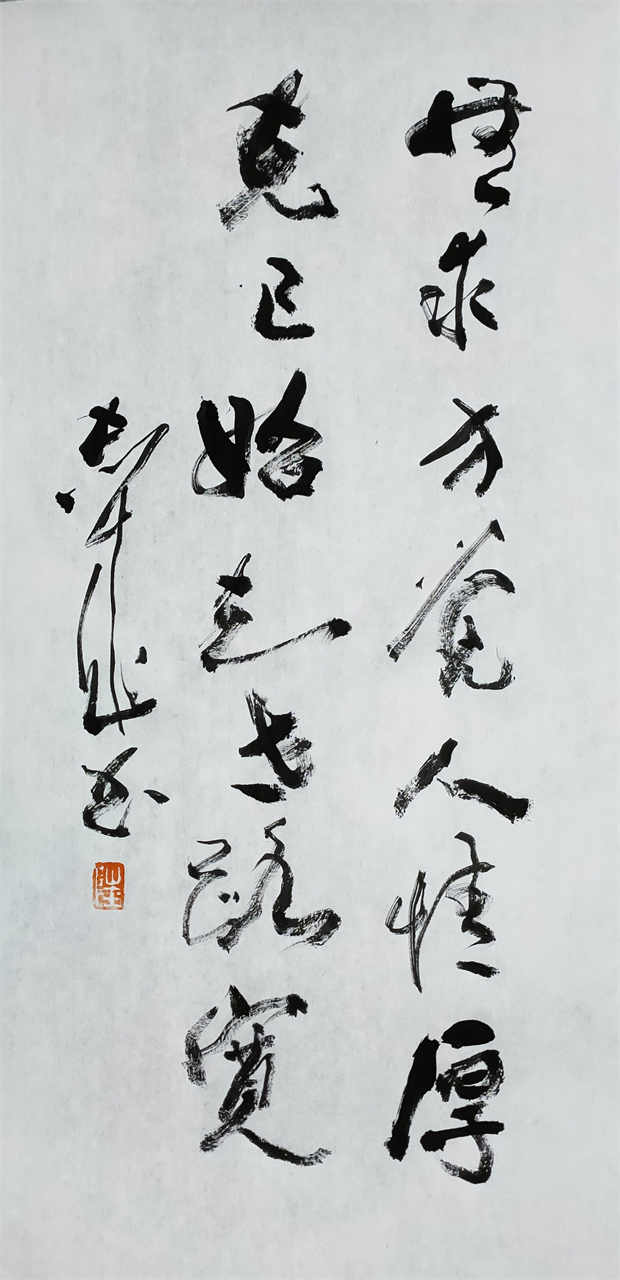 無求方覺人情厚
克己始知世路寬
書